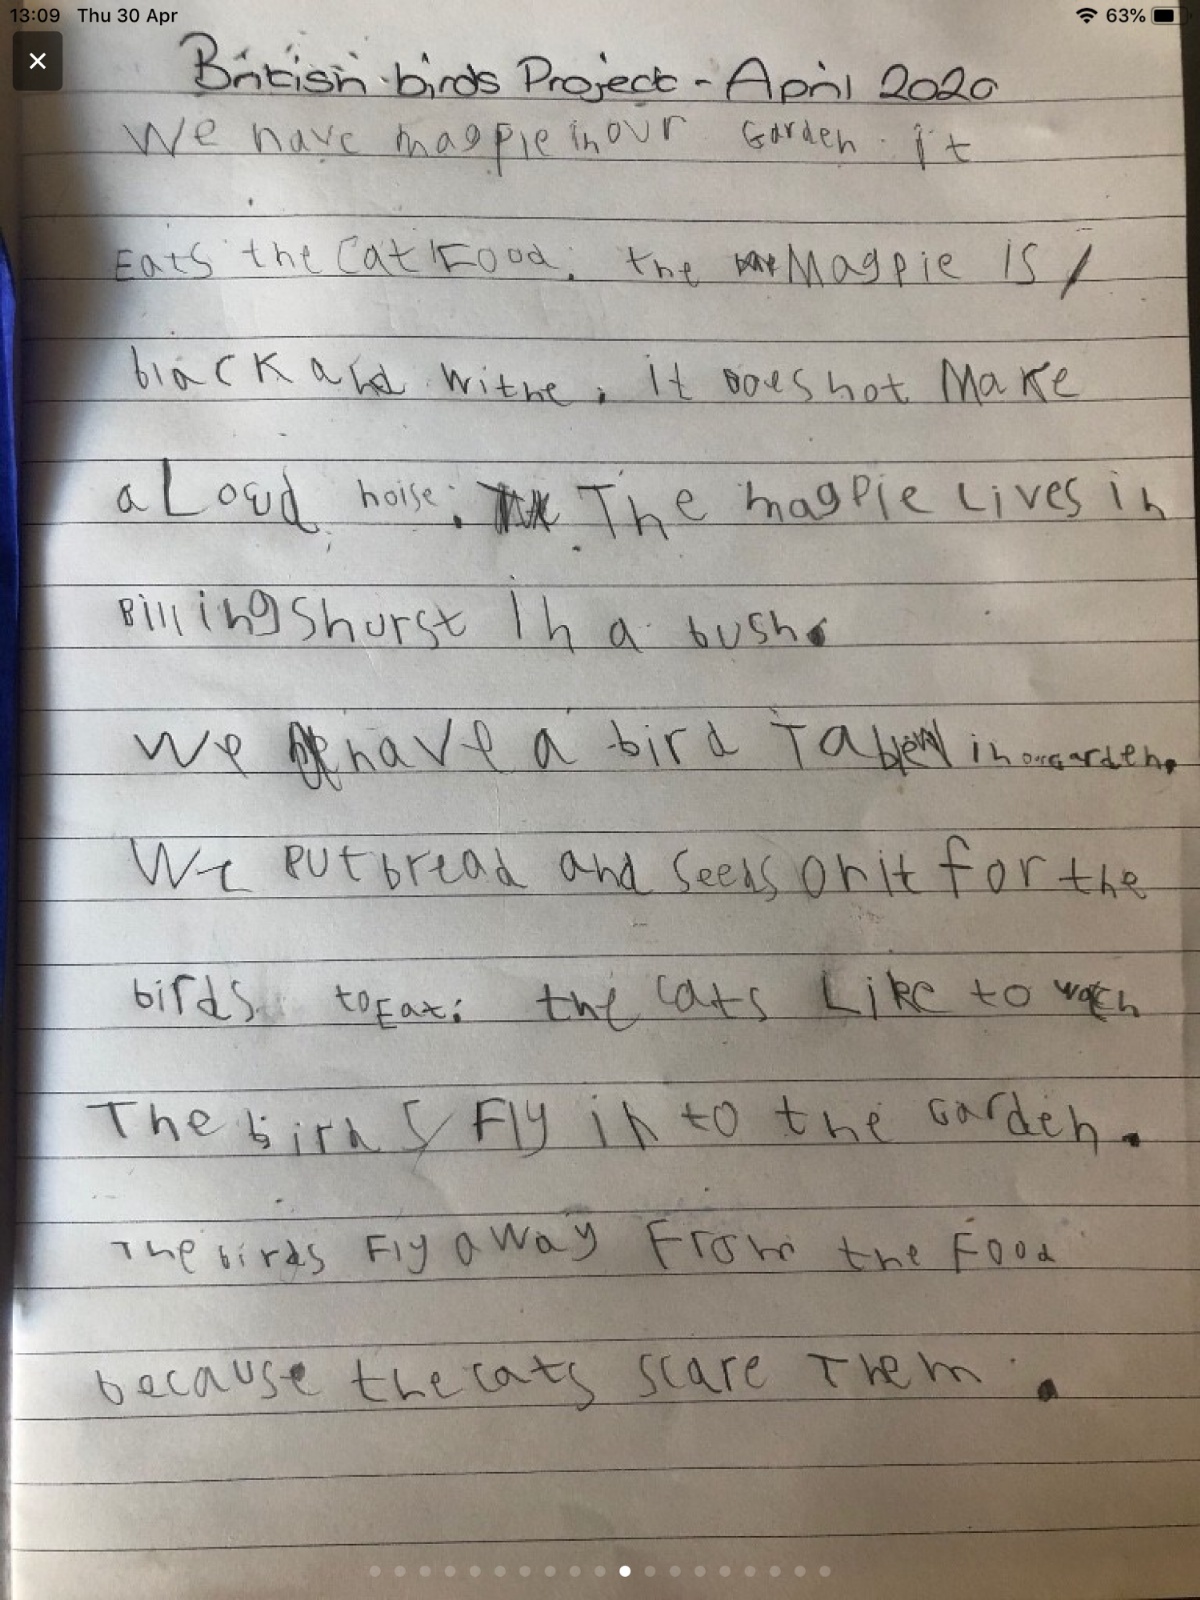 13:09 Thu 30 Apr 63%
British birds Project - April 2020
We have magpie in our Garden. it
Eats the Cat Food. the Magpie is
black and withe. it does not Make
a Loud noise. The magpie Lives in
Billingshurst In a bush.
We have a bird Table in our garden.
We put bread and seeds on it for the
birds to Eat. the cats Like to wach
The birds Fly in to the Garden.
The birds Fly away From the Food
because the cats scare Them.